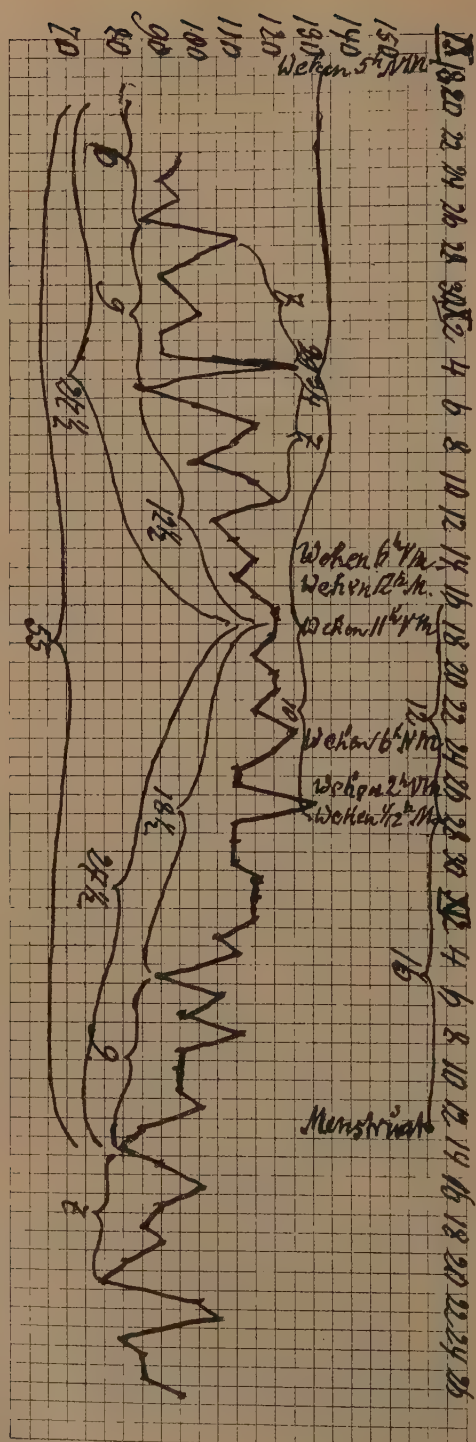 18 20 22 24 26 28 30 2 4 6 8 10 12 14 16 18 20 22 24 26 28 30 2 4 6 8 10 12 14 16 18 20 22 24 26
150
140
130
120
110
100
90
80
70
Wehen 5h NM
Wehen 6h VM.
Wehen 12h M.
Wehen 11h VM
Wehen 6h NM
Wehen 2h VM
Wehen
Menstruat
12
16
7
34
7
10
6
9
12½
18½
9
7
27½
27½
55